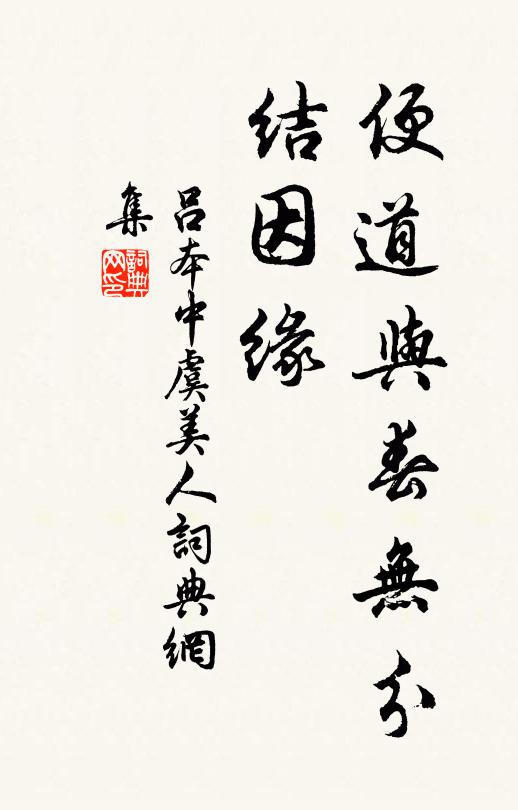 便道與春無分
結因緣
呂本中虞美人詞典網
集
詞典
网印